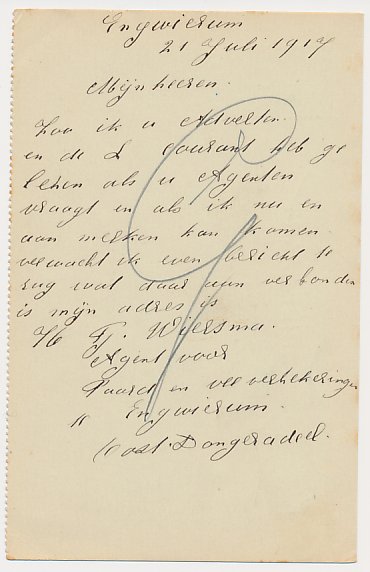 Engwierum
21 Juli 1917
Mijnheeren.
Zoo ik u Adverten
en de L Courant heb ge
lezen als u Agenten
vraagt en als ik nu en
aan merken kan komen
verwacht ik even bericht te
rug wat daar aan verbonden
is mijn adres is
Tj. Wiersma.
Agent voor
Paard en vee verzekeringen
" Engwierum.
Oost. Dongeradeel.